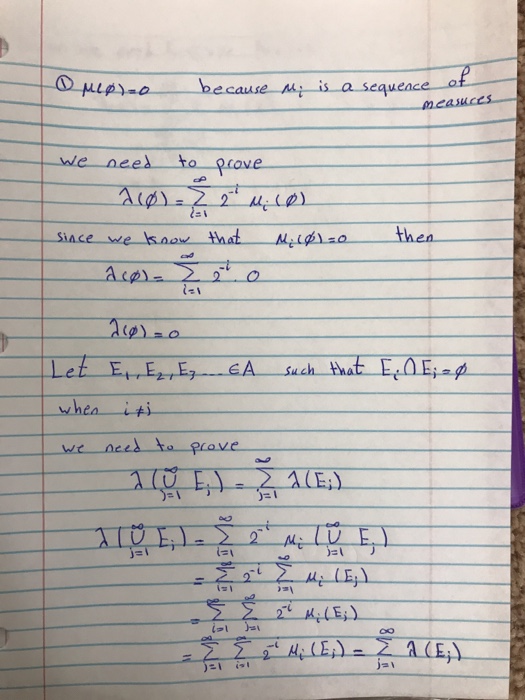 ① μ(φ)=0 because μᵢ is a sequence of
measures
we need to prove
λ(φ) = ∑_{i=1}^{∞} 2^{-i} μᵢ(φ)
since we know that μᵢ(φ)=0 then
λ(φ) = ∑_{i=1}^{∞} 2^{-i} . 0
λ(φ) = 0
Let E₁, E₂, E₃ .... ∈A such that Eᵢ ∩ Eⱼ = φ
when i≠j
we need to prove
λ(⋃_{j=1}^{∞} Eⱼ) = ∑_{j=1}^{∞} λ(Eⱼ)
λ(⋃_{j=1}^{∞} Eⱼ) = ∑_{i=1}^{∞} 2^{-i} μᵢ (⋃_{j=1}^{∞} Eⱼ)
= ∑_{i=1}^{∞} 2^{-i} ∑_{j=1}^{∞} μᵢ (Eⱼ)
= ∑_{i=1}^{∞} ∑_{j=1}^{∞} 2^{-i} μᵢ(Eⱼ)
= ∑_{j=1}^{∞} ∑_{i=1}^{∞} 2^{-i} μᵢ(Eⱼ) = ∑_{j=1}^{∞} λ(Eⱼ)